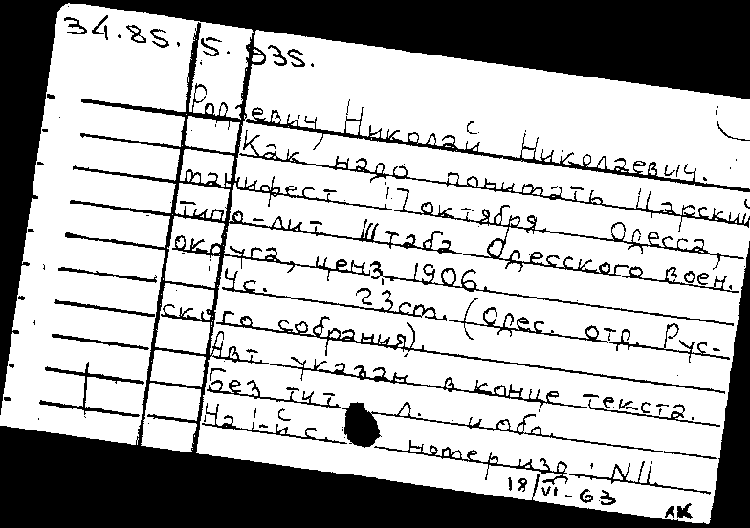 34.85. 5. 935.
Радзевич, Николай Николаевич.
Как надо понимать Царский
манифест 17 октября. Одесса,
типо-лит Штаба Одесского воен.
округа, ценз. 1906.
4с. 23см. (Одес. отд. Рус-
ского собрания).
Авт. указан в конце текста.
Без тит. л. и обл.
На 1-й с. номер изд.: N11.
18/VI-63
ЛК